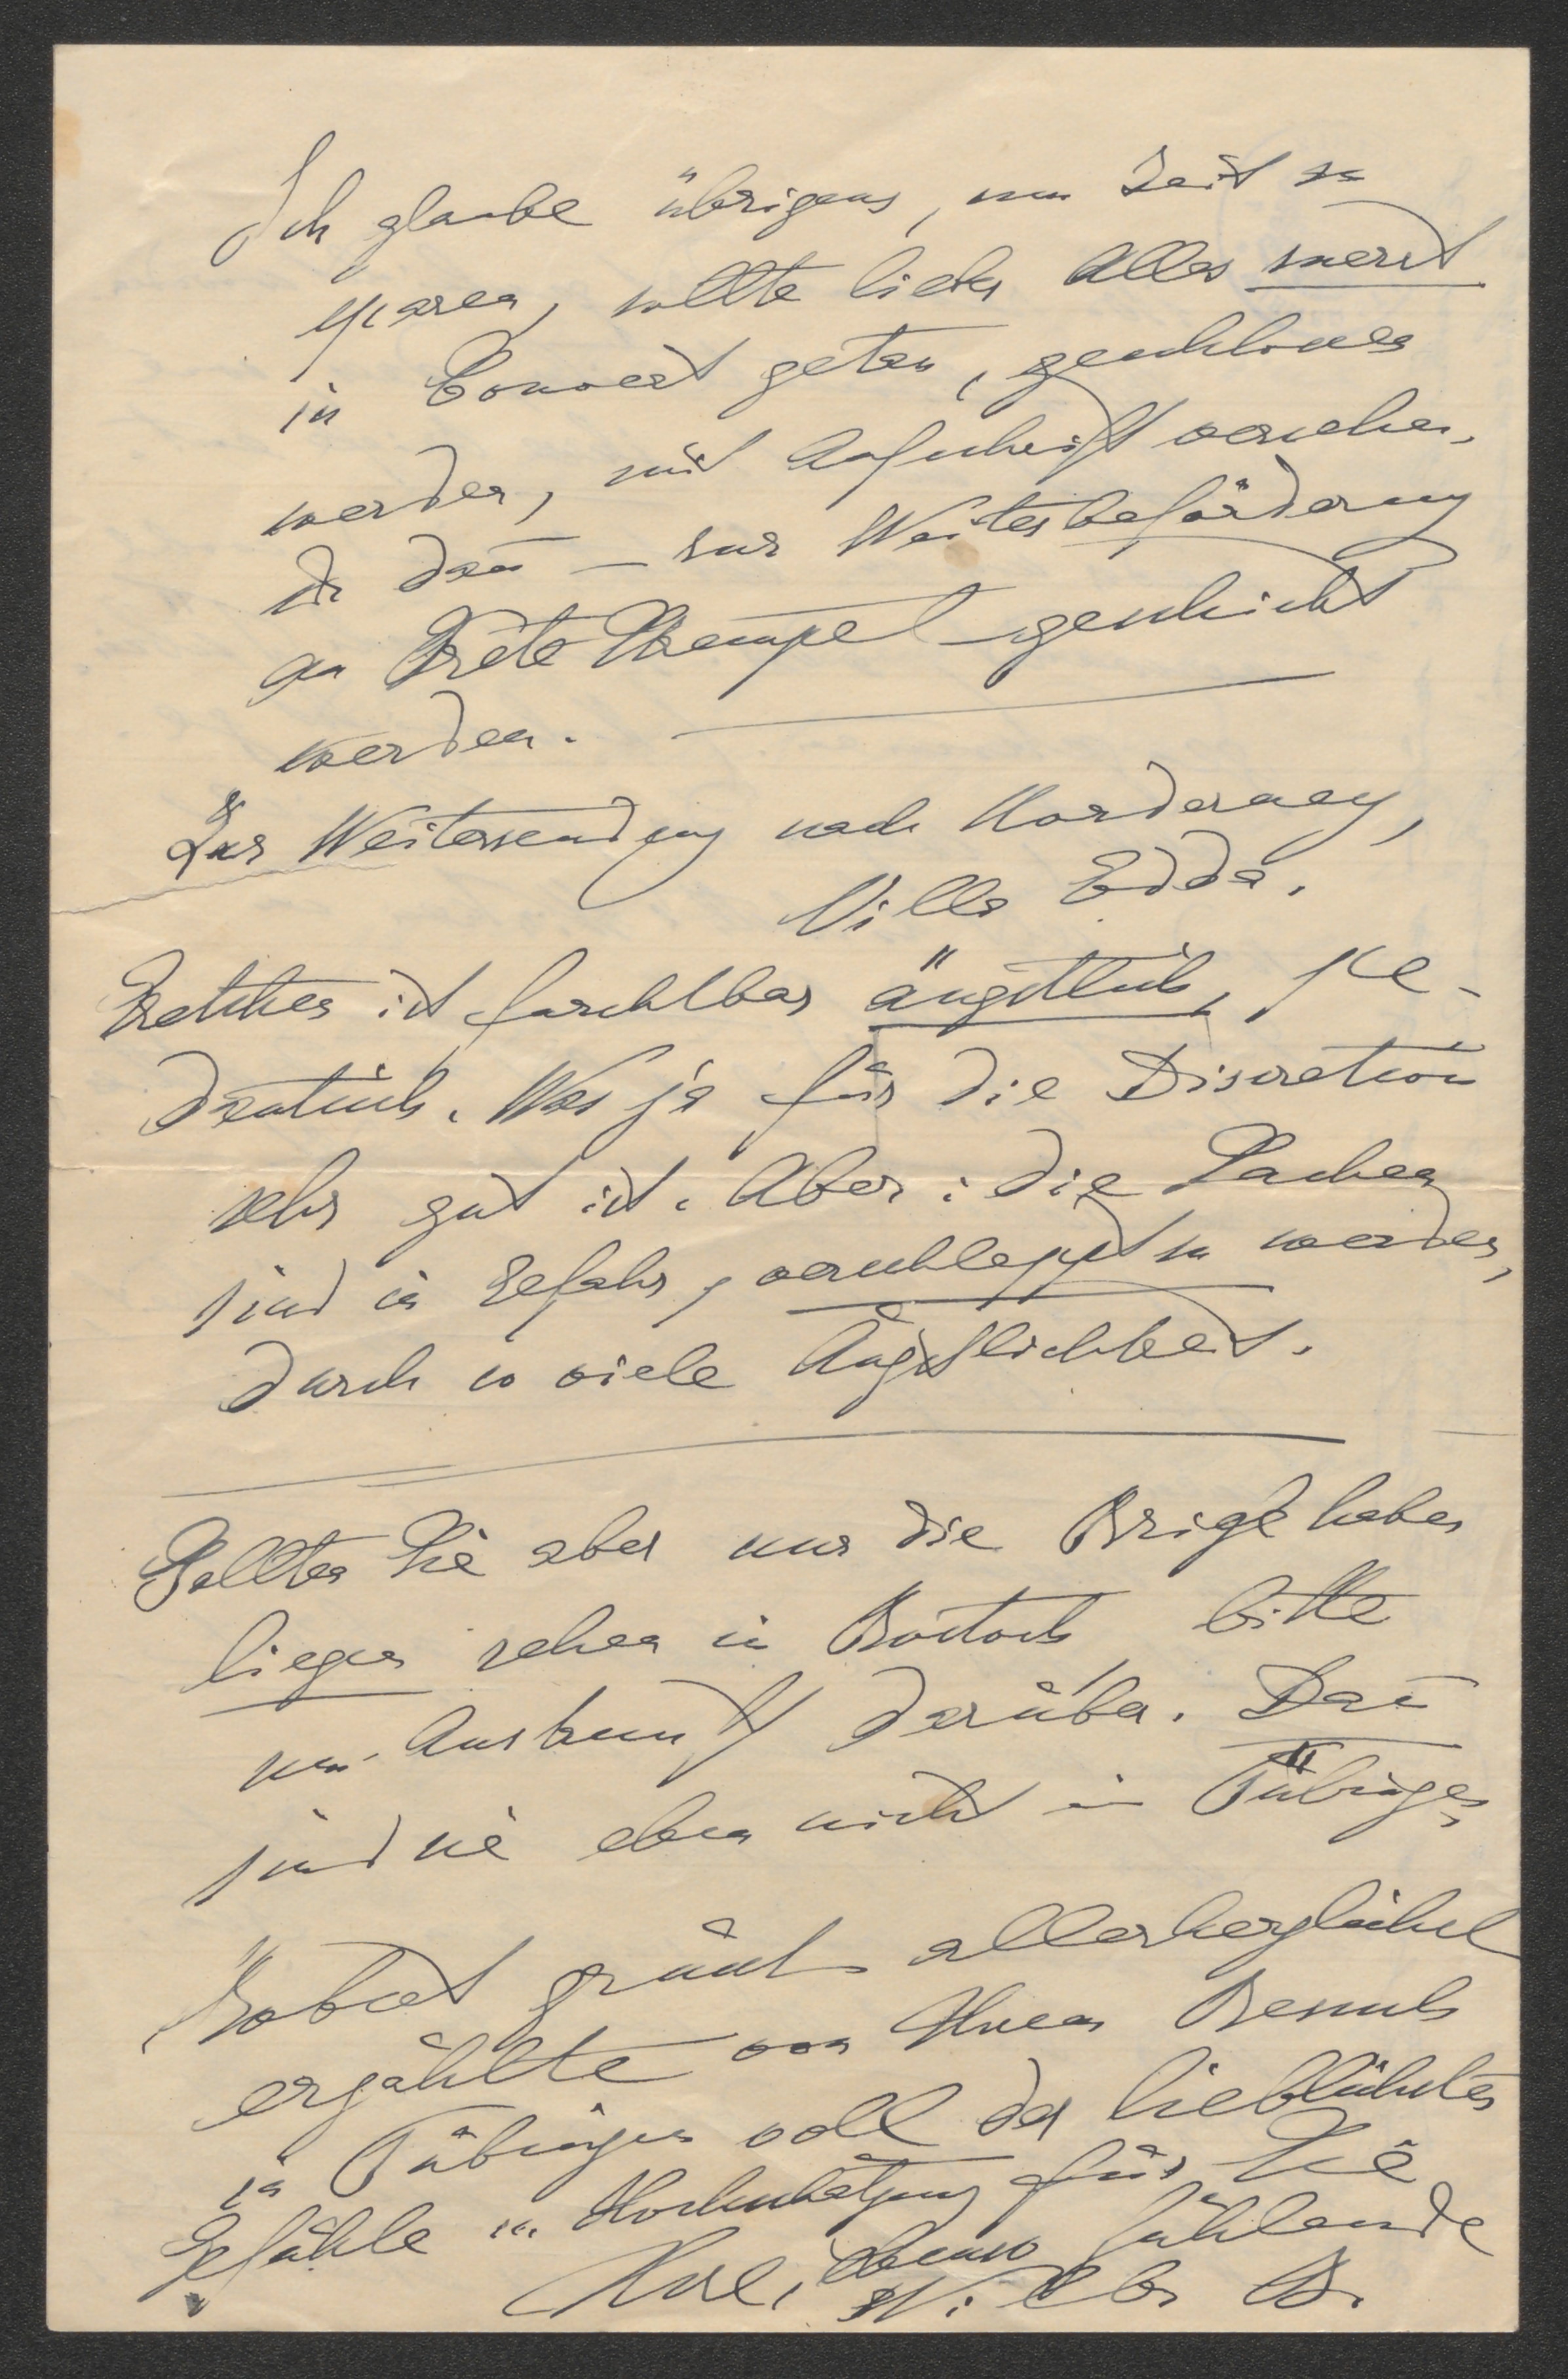 Ich glaube übrigens, um Zeit zu
sparen, sollte lieber Alles zuerst
in Couvert getan, geschlossen
werden, mit Aufschrift versehen,
u dañ – zur Weiterbeförderung
an Grete geschickt
werden.
Zur Weitersendung nach Norderney,
Villa Edda.
Gretchen ist furchtbar ängstlich, pe-
dantisch. Was ja für die Discretion
sehr gut ist. Aber: die Sachen
sind in Gefahr, verschleppt zu werden,
durch so viele Ängstlichkeit.
Sollten Sie aber nur die Briefe haben
liegen sehen in Rostock bitte
um Auskunft darüber. Dañ
sind sie eben nicht in Tübingen,
Robert grüsst allerherzlichst
erzählte von Ihrem Besuch
in Tübingen voll der lieblichsten
Gefühle u. Hochschätzung für Sie
Ihre, ebenso fühlende